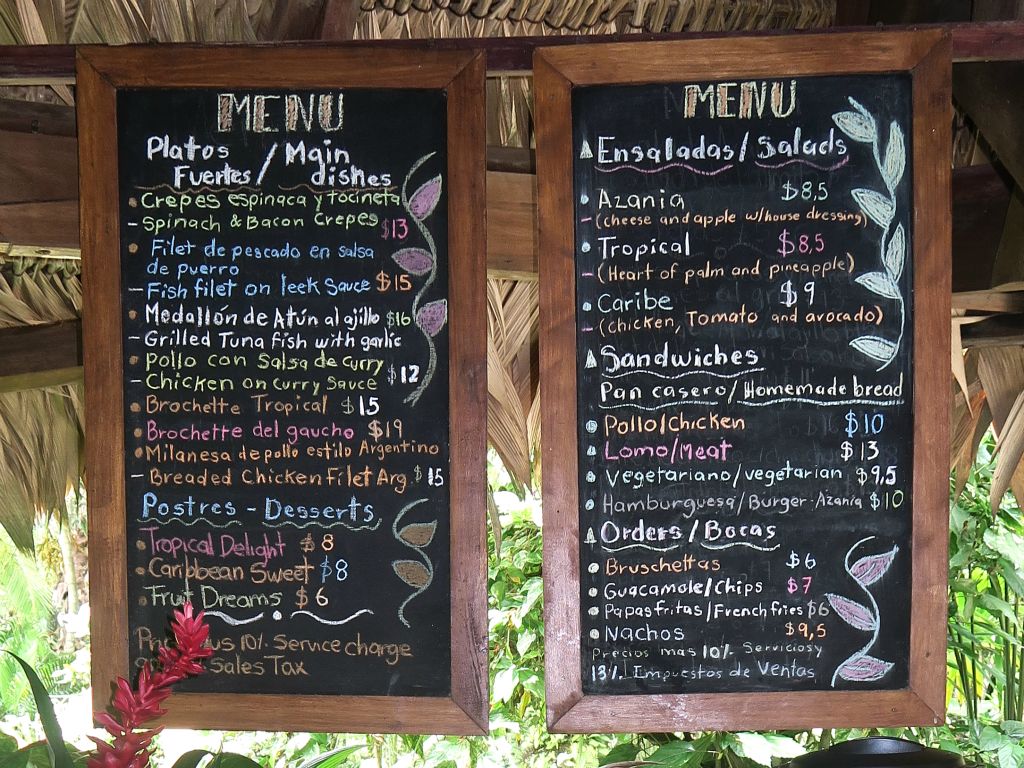 MENU
Platos / Main
Fuertes / dishes
Crepes espinaca y tocineta
- Spinach & Bacon Crepes $13
Filet de pescado en salsa
de puerro
- Fish filet on leek Sauce $15
Medallón de Atún al ajillo $16
- Grilled Tuna fish with garlic
Pollo con Salsa de Curry
- Chicken on Curry Sauce $12
Brochette Tropical $15
Brochette del gaucho $19
Milanesa de pollo estilo Argentino
- Breaded Chicken Filet Arg. $15
Postres - Desserts
Tropical Delight $8
Caribbean Sweet $8
Fruit Dreams $6
10% Service charge
Sales Tax
MENU
Ensaladas/Salads
Azania $8,5
- (cheese and apple w/house dressing)
Tropical $8,5
- (Heart of palm and pineapple)
Caribe $9
- (chicken, Tomato and avocado)
Sandwiches
Pan casero/Homemade bread
Pollo/Chicken $10
Lomo/Meat $13
Vegetariano/vegetarian $9,5
Hamburguesa/Burger Azania $10
Orders/Bocas
Bruschettas $6
Guacamole/Chips $7
Papas fritas/French fries $6
Nachos $9,5
Precios mas 10% Servicio y
13% Impuestos de Ventas